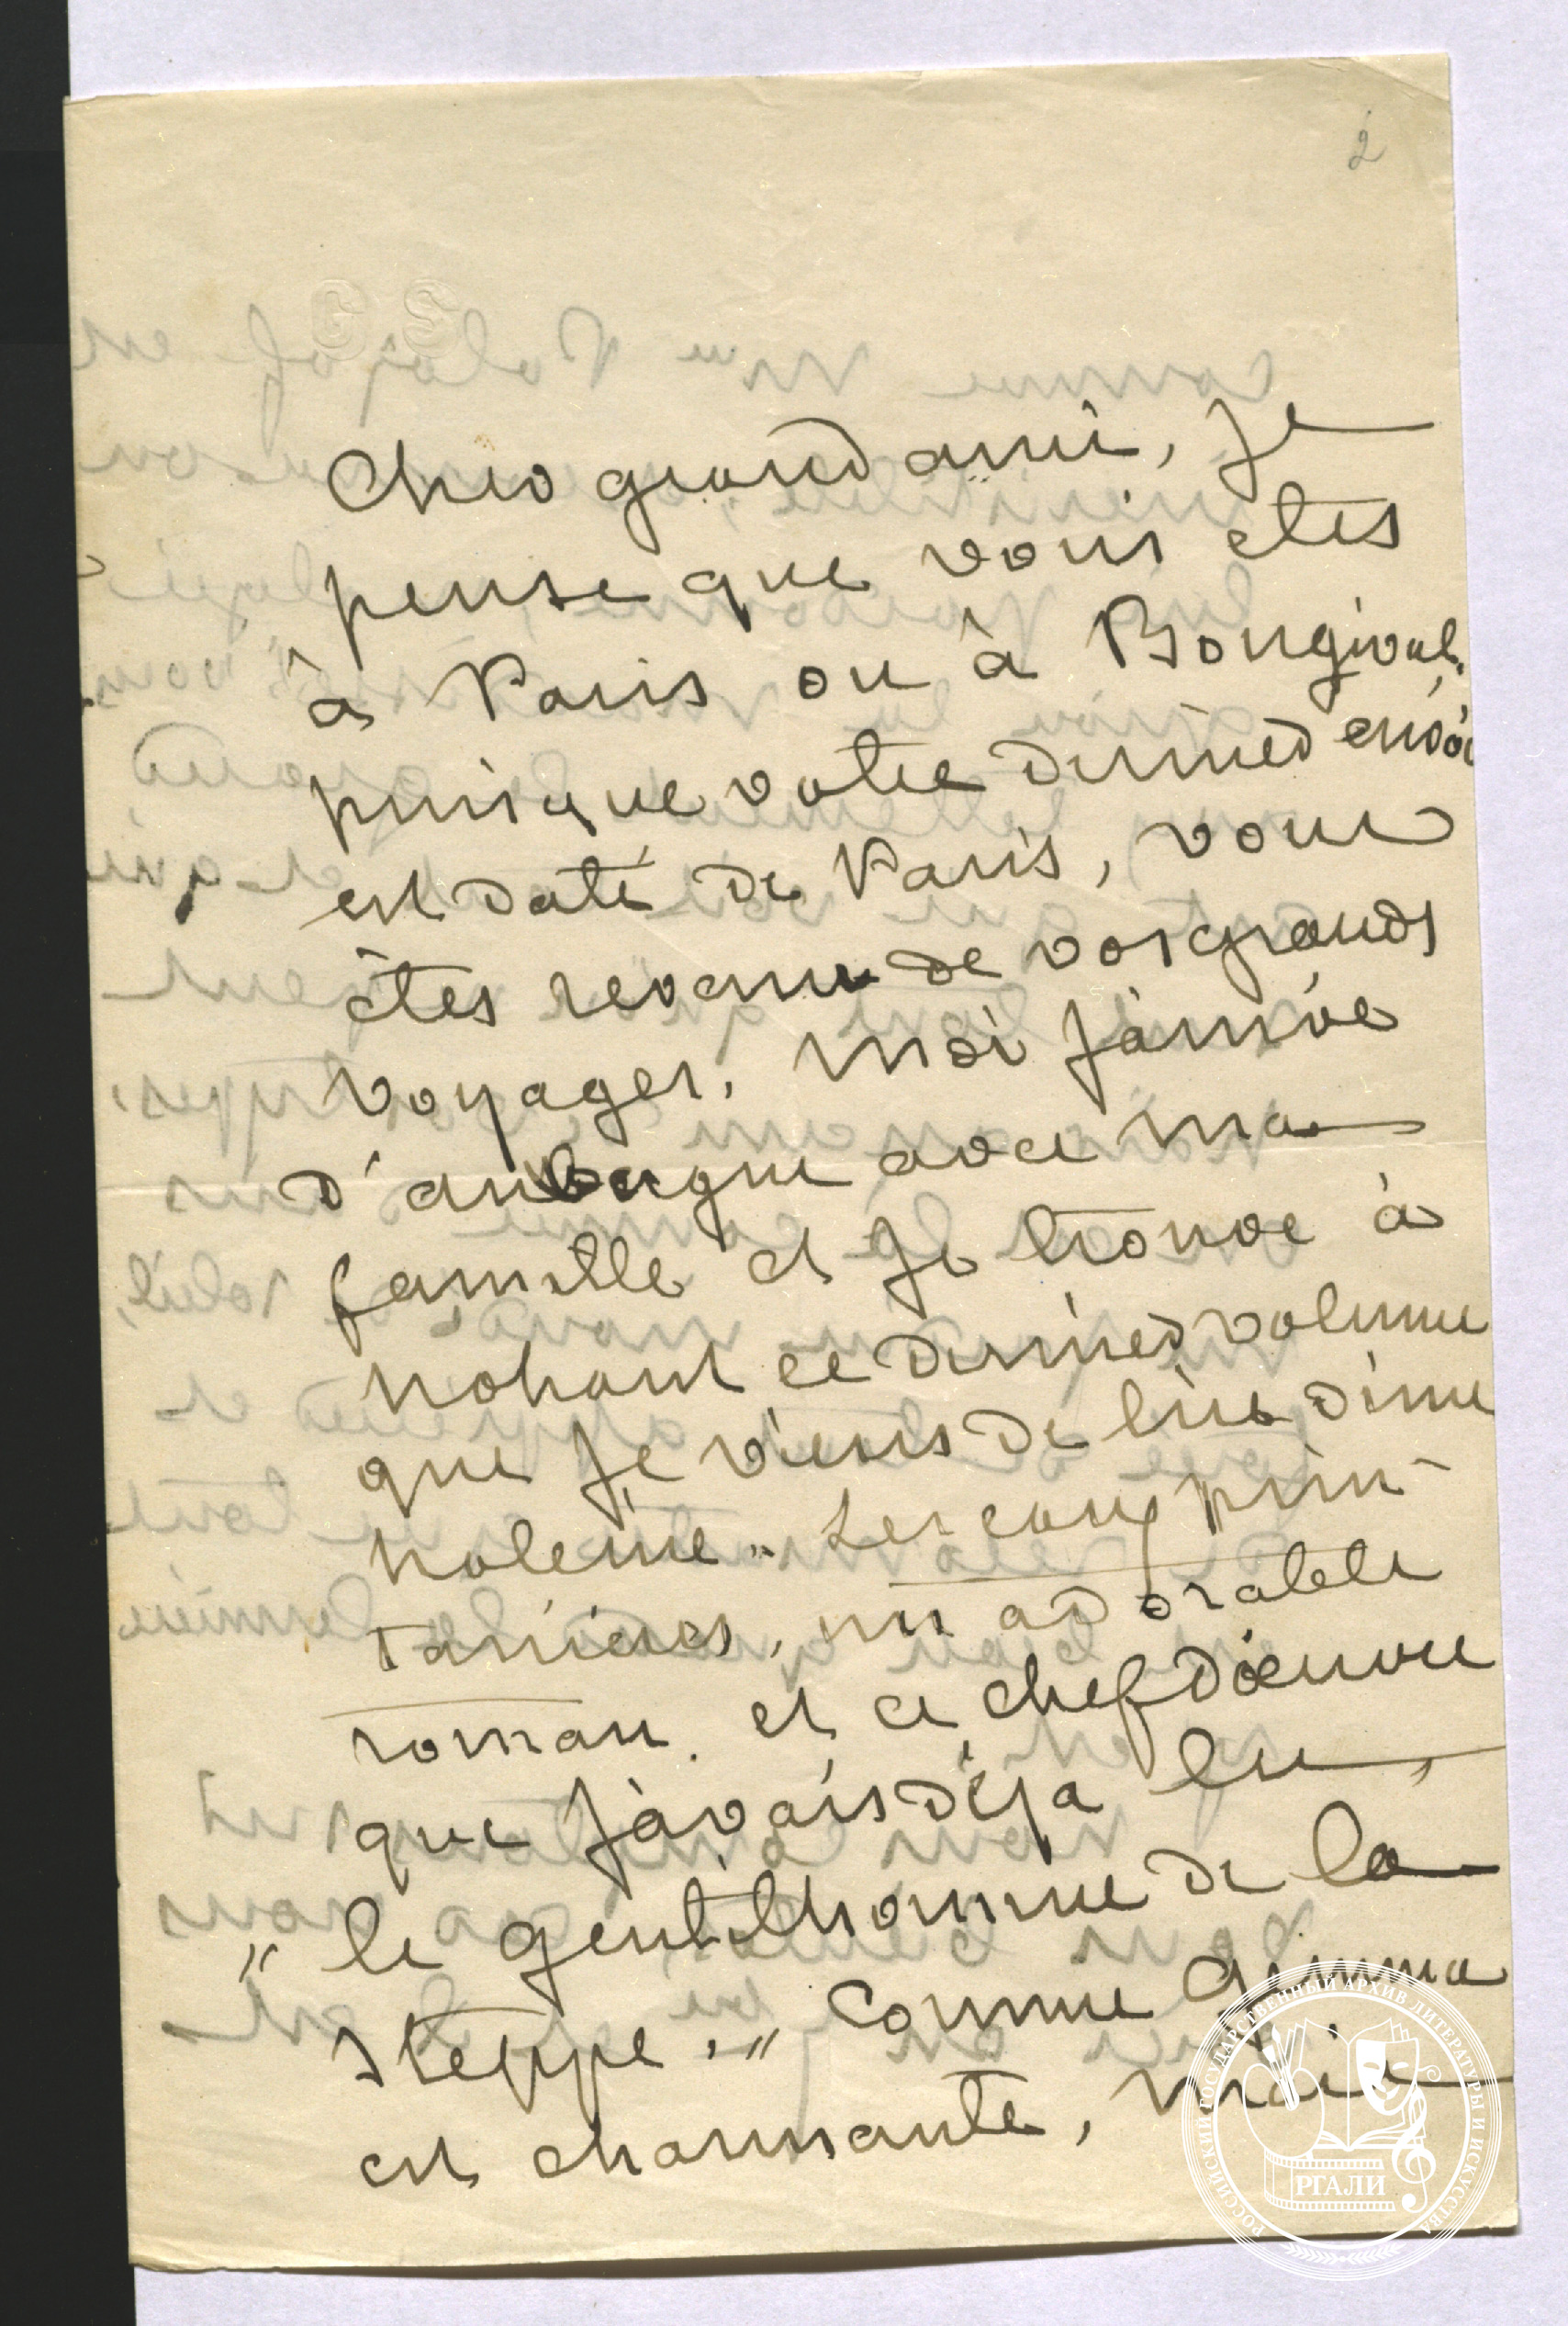 2
Cher grand ami, Je
pense que vous etes
à Paris ou à Bougival.
puisque votre dernier envoi
est daté de Paris, vous
êtes revenu de vos grands
voyages. Moi J'arrive
d'auvergne avec ma
famille et Je trouve à
Nohant ce dernier volume
que Je viens de lire d'une
haleine. Les eaux prin-
tanières, un adorable
roman. et ce chef d'œuvre
que J'avais déja lu,
"le gentilhomme de la
steppe." Comme Gemma
est charmante, mais
РОССИЙСКИЙ ГОСУДАРСТВЕННЫЙ АРХИВ ЛИТЕРАТУРЫ И ИСКУССТВА
РГАЛИ